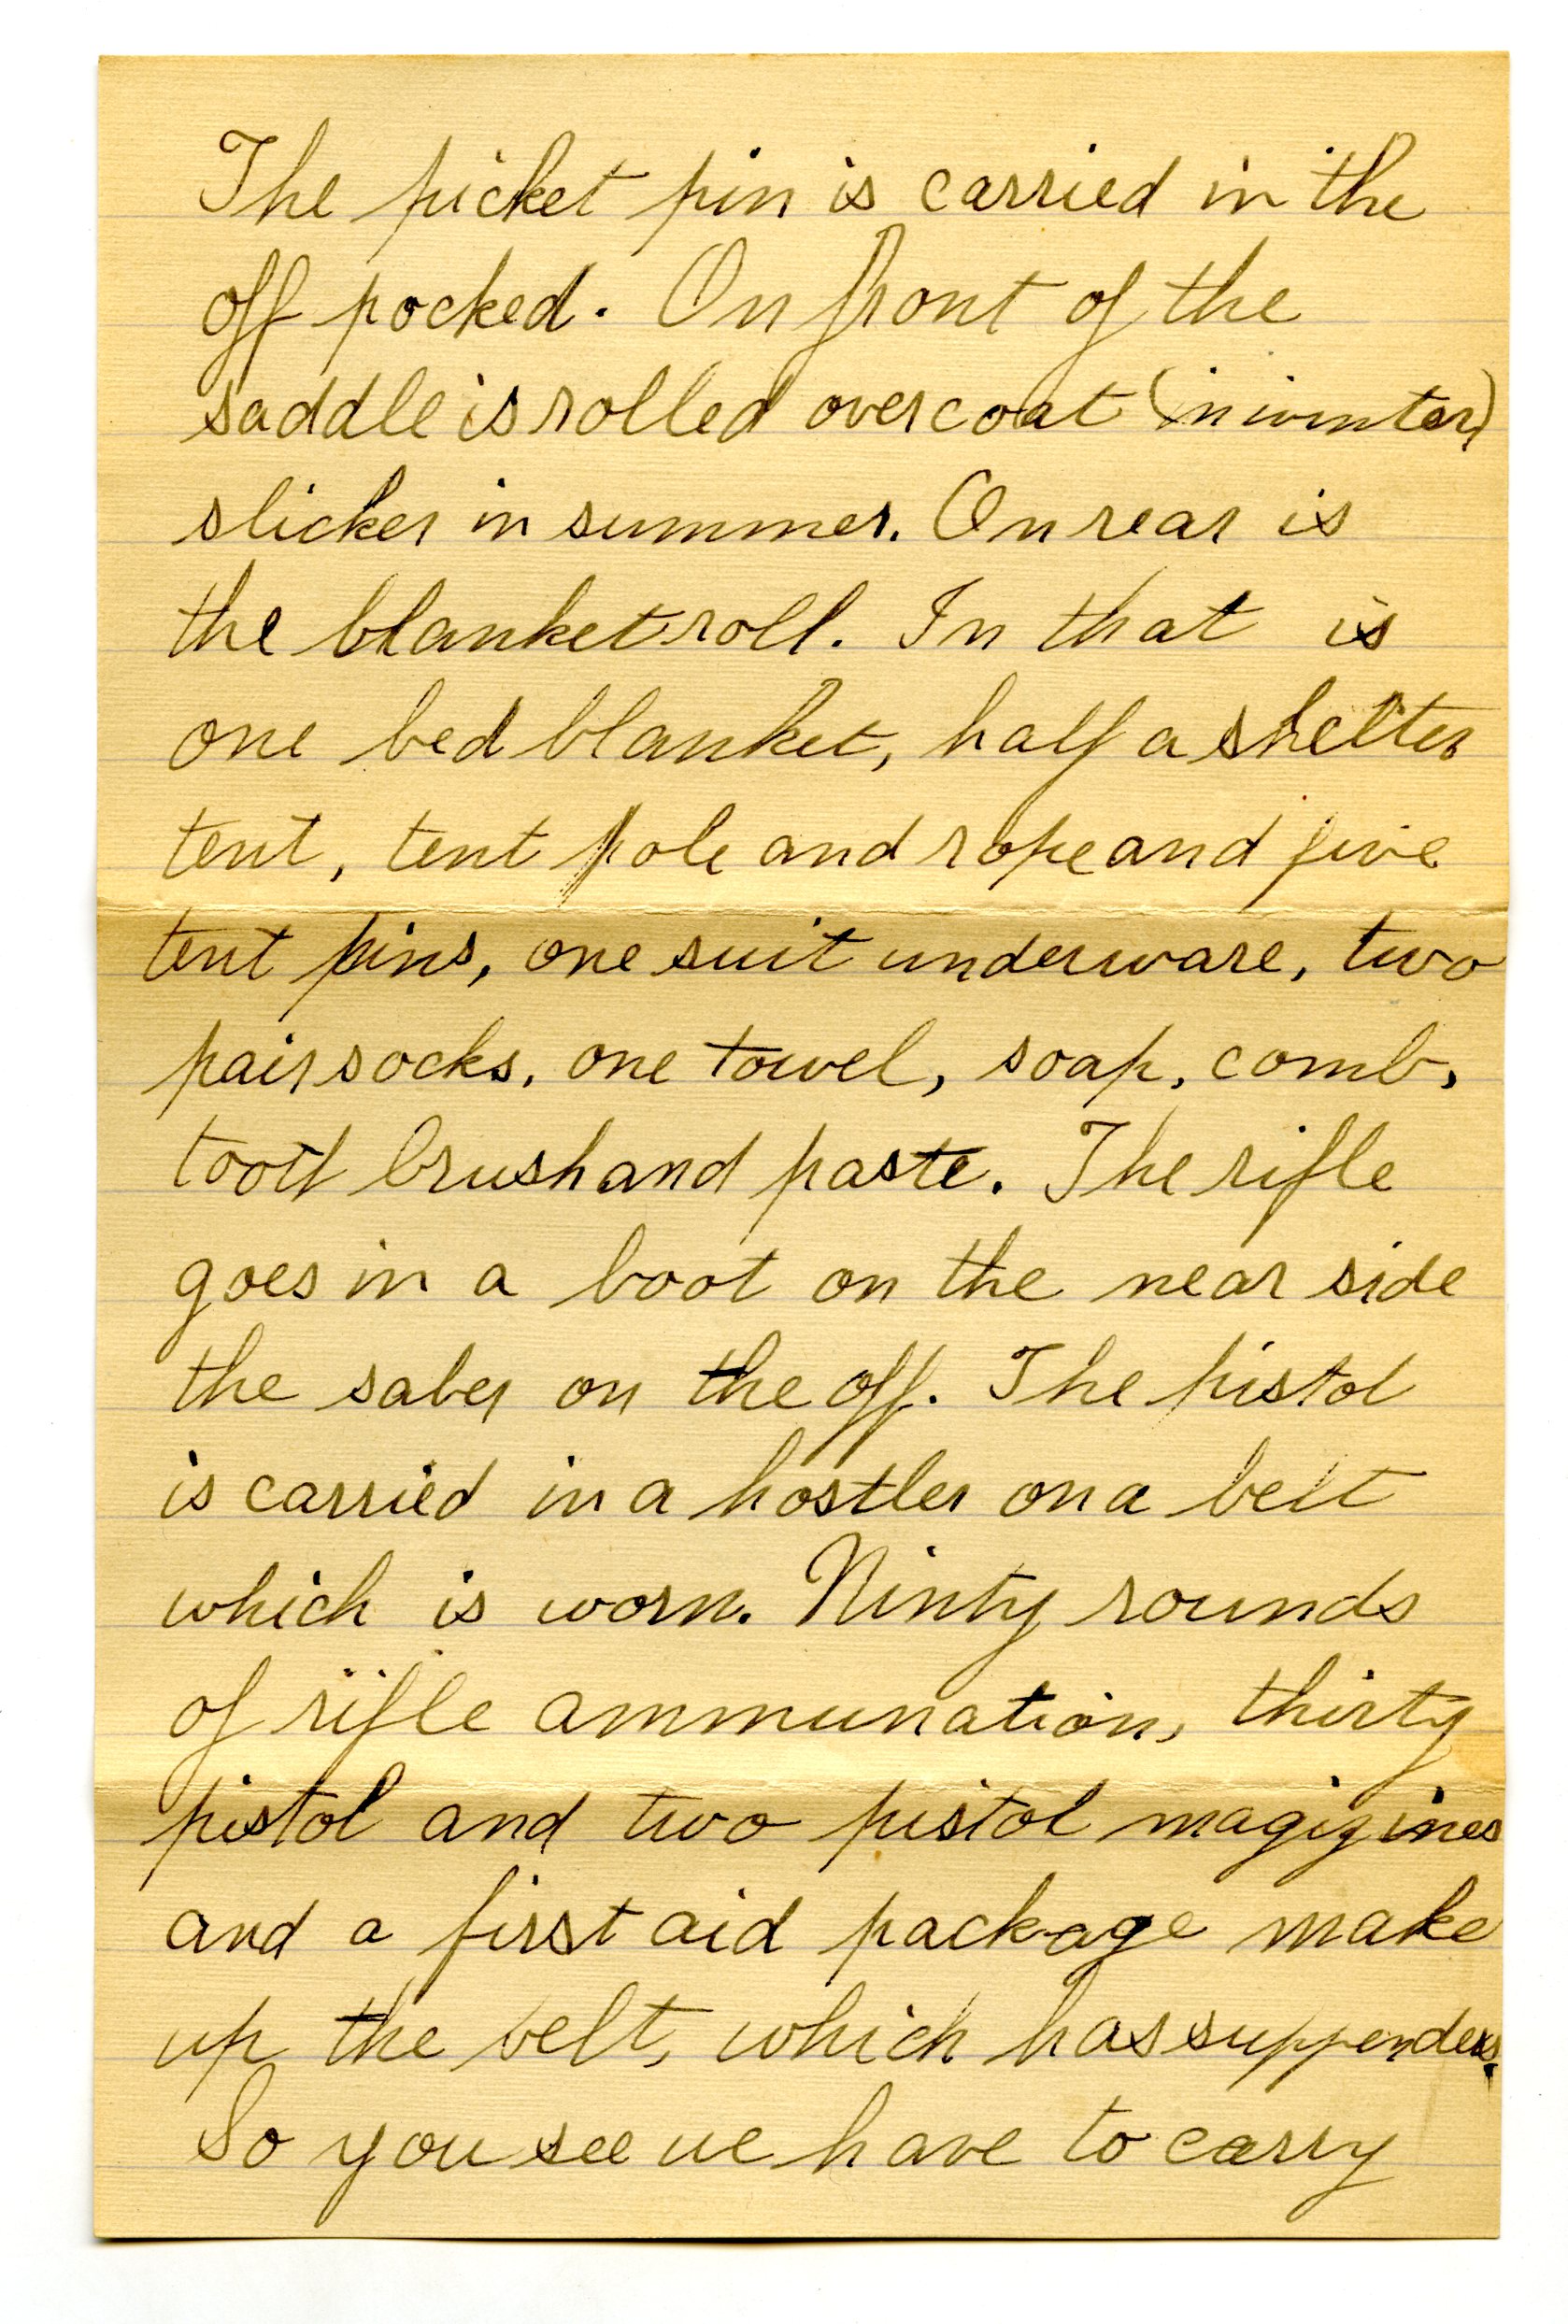 The picket pin is carried in the
off pocked. On front of the
saddle is rolled overcoat (in winter)
slicker in summer. On rear is
the blanket roll. In that is
one bed blanket, half a shelter
tent, tent pole and rope and five
tent pins, one suit underware, two
pair socks, one towel, soap, comb,
tooth brush and paste. The rifle
goes in a boot on the near side
the saber on the off. The pistol
is carried in a hostler on a belt
which is worn. Ninty rounds
of rifle ammunation, thirty
pistol and two pistol magizines
and a first aid package make
up the belt, which has suppenders.
So you see we have to carry